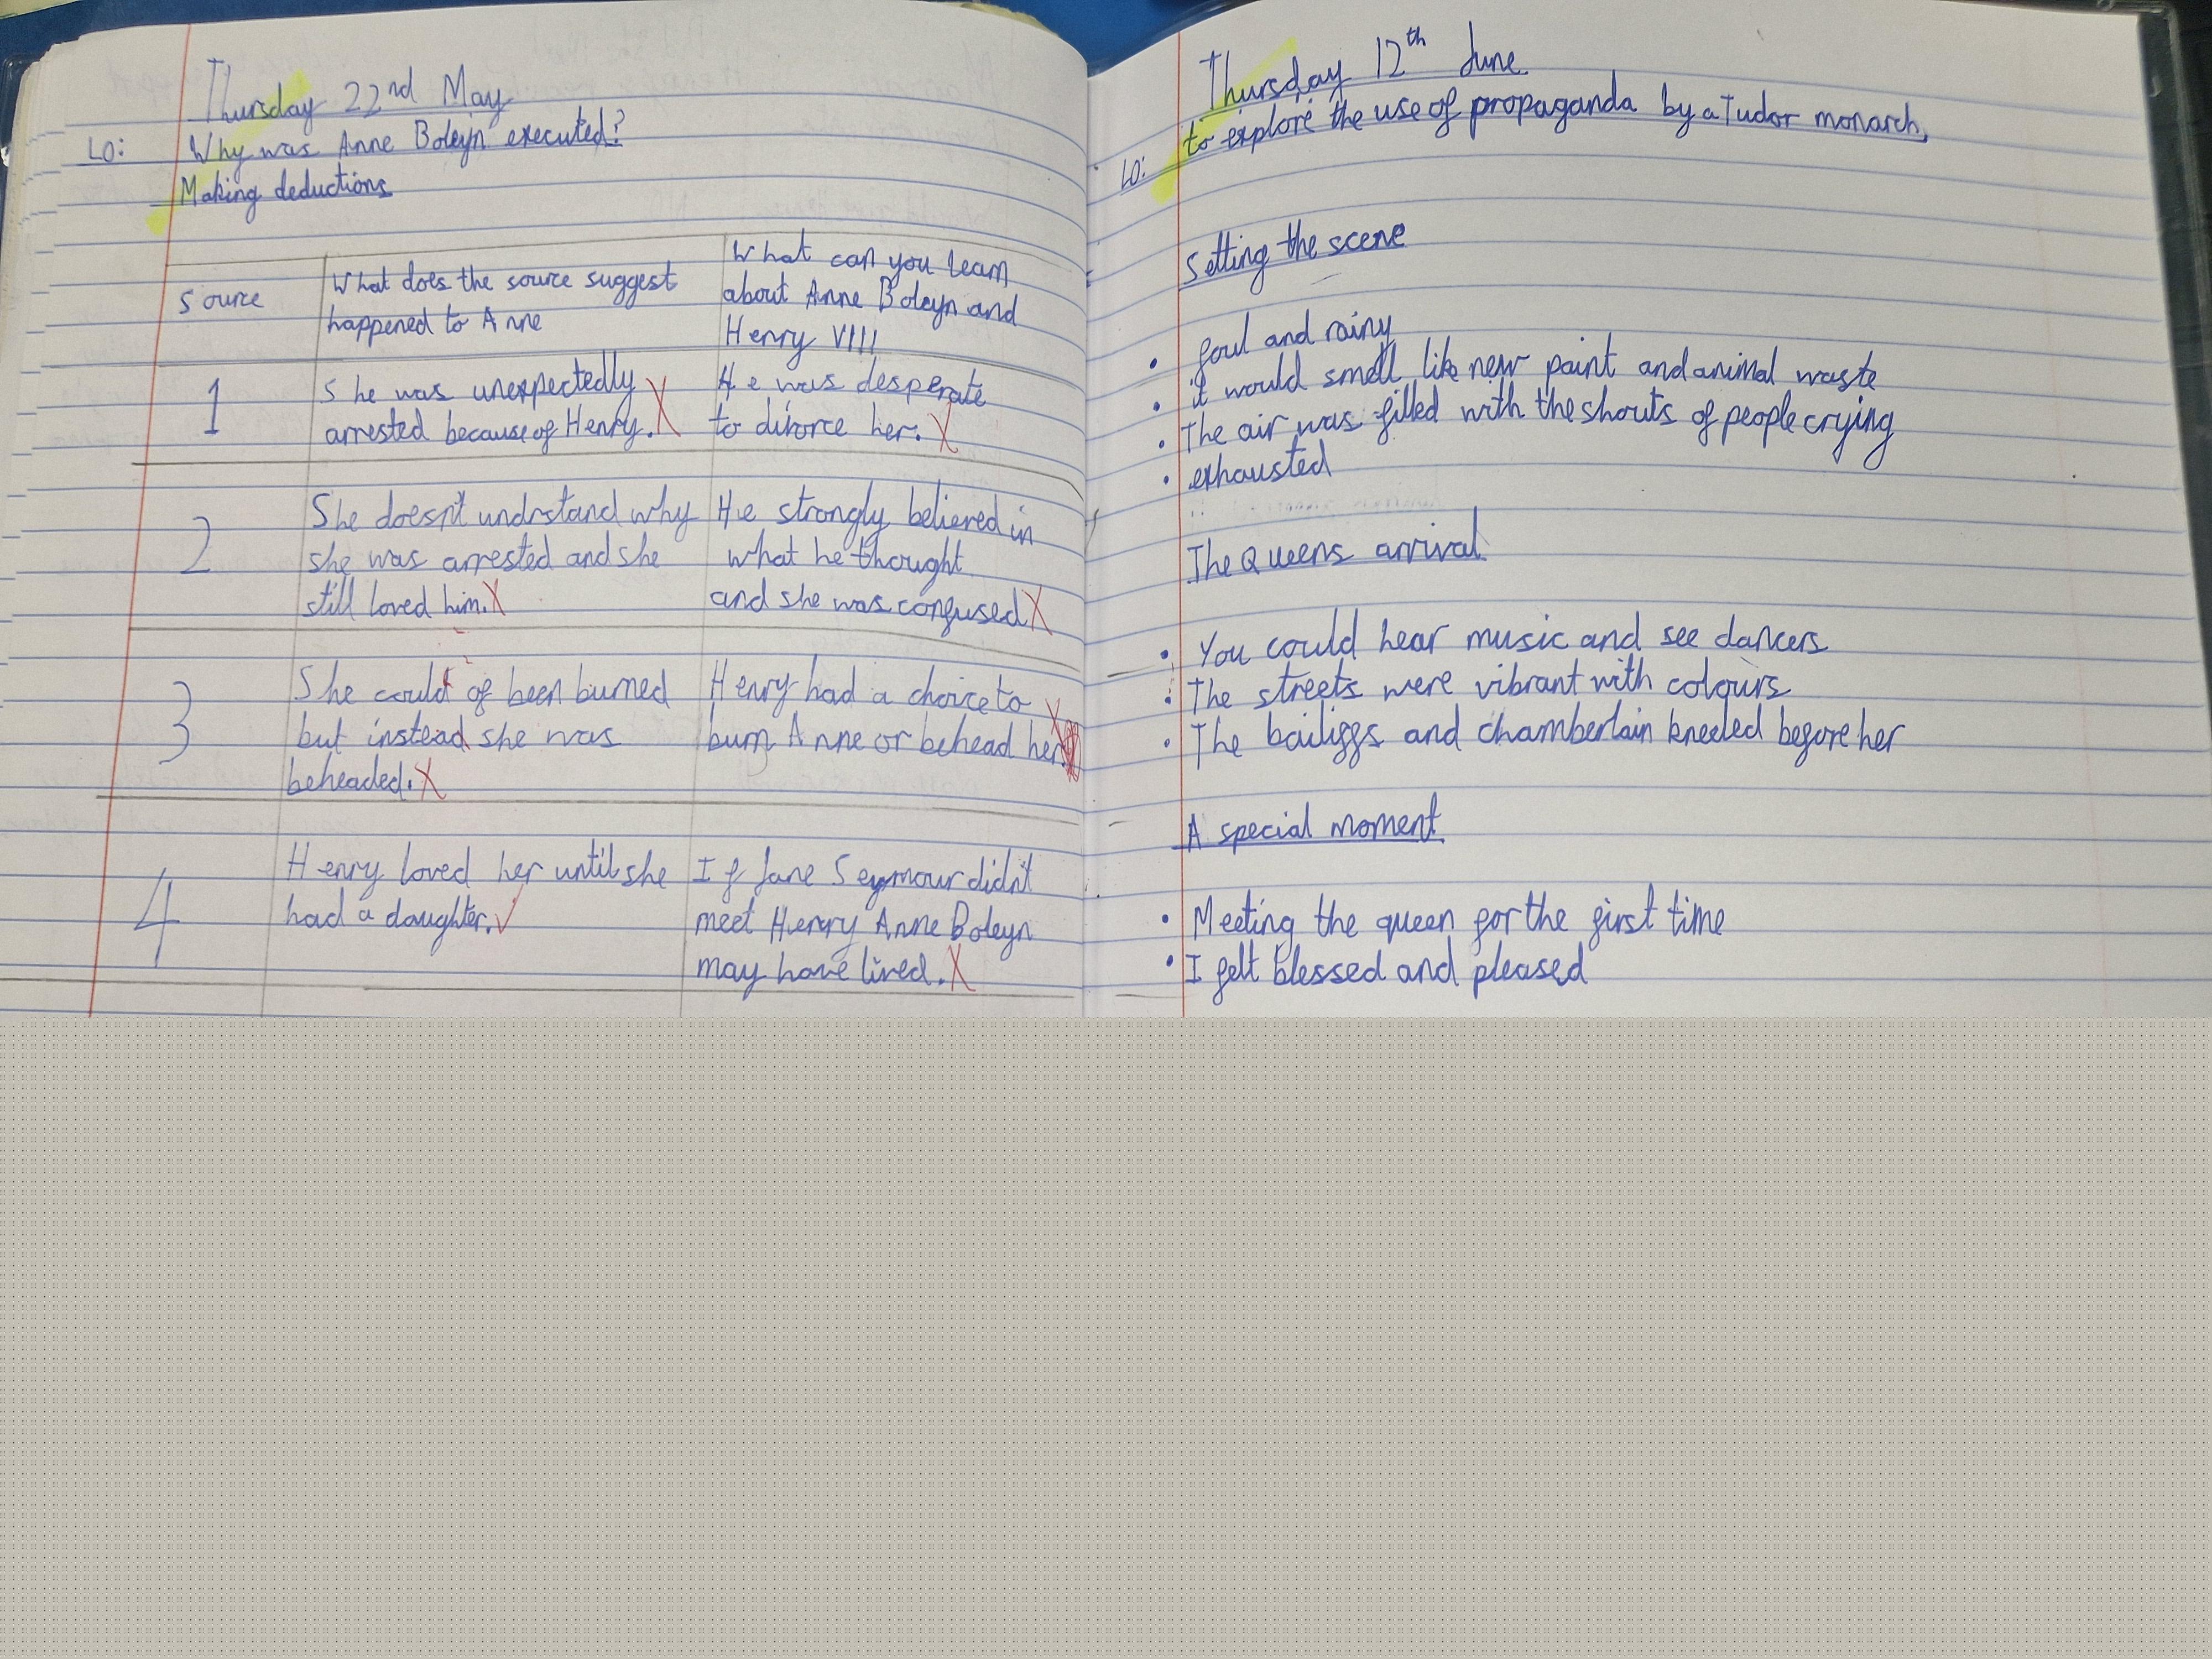 Thursday 22nd May
LO: Why was Anne Boleyn executed?
Making deductions
Source
What does the source suggest
happened to Anne
What can you learn
about Anne Boleyn and
Henry VIII
1
She was unexpectedly
arrested because of Henry.
He was desperate
to divorce her.
2
She doesn't undrstand why
she was arrested and she
still loved him.
He strongly believed in
what he thought
and she was confused
3
She could of been burned
but instead she was
beheaded.
Henry had a choice to
burn Anne or behead her
4
Henry loved her until she
had a daughter.
If Jane Seymour didn't
meet Henry Anne Boleyn
may have lived.
Thursday 12th June
LO: to explore the use of propaganda by a Tudor monarch,
Setting the scene
• foul and rainy
• it would smell like new paint and animal waste
• The air was filled with the shouts of people crying
• exhausted
The Queens arrival
• You could hear music and see dancers
• The streets were vibrant with colours
• The bailiffs and chamberlain kneeled before her
A special moment
• Meeting the queen for the first time
• I felt blessed and pleased